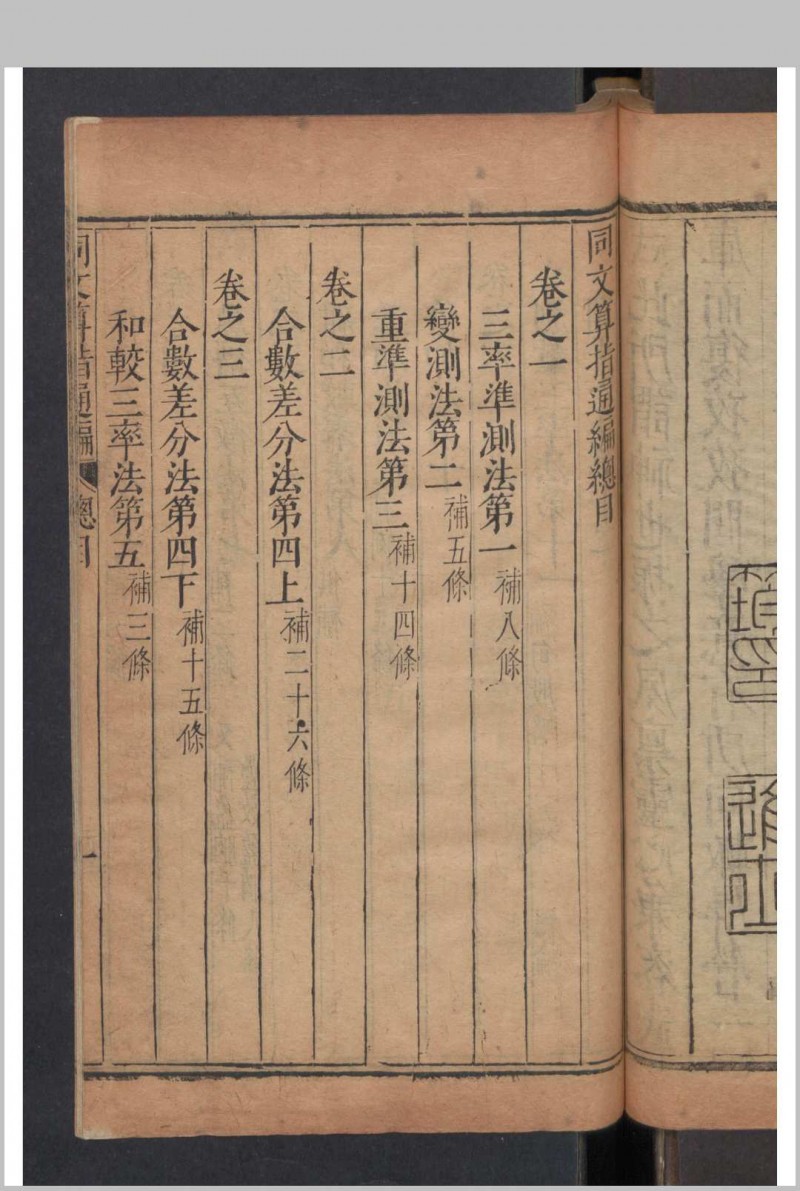 同文算指通編總目
卷之一
三率準測法第一補八條
變測法第二補五條
重準測法第三補十四條
卷之二
合數差分法第四上補二十六條
卷之三
合數差分法第四下補十五條
和較三率法第五補三條
同文算指通編 總目 一